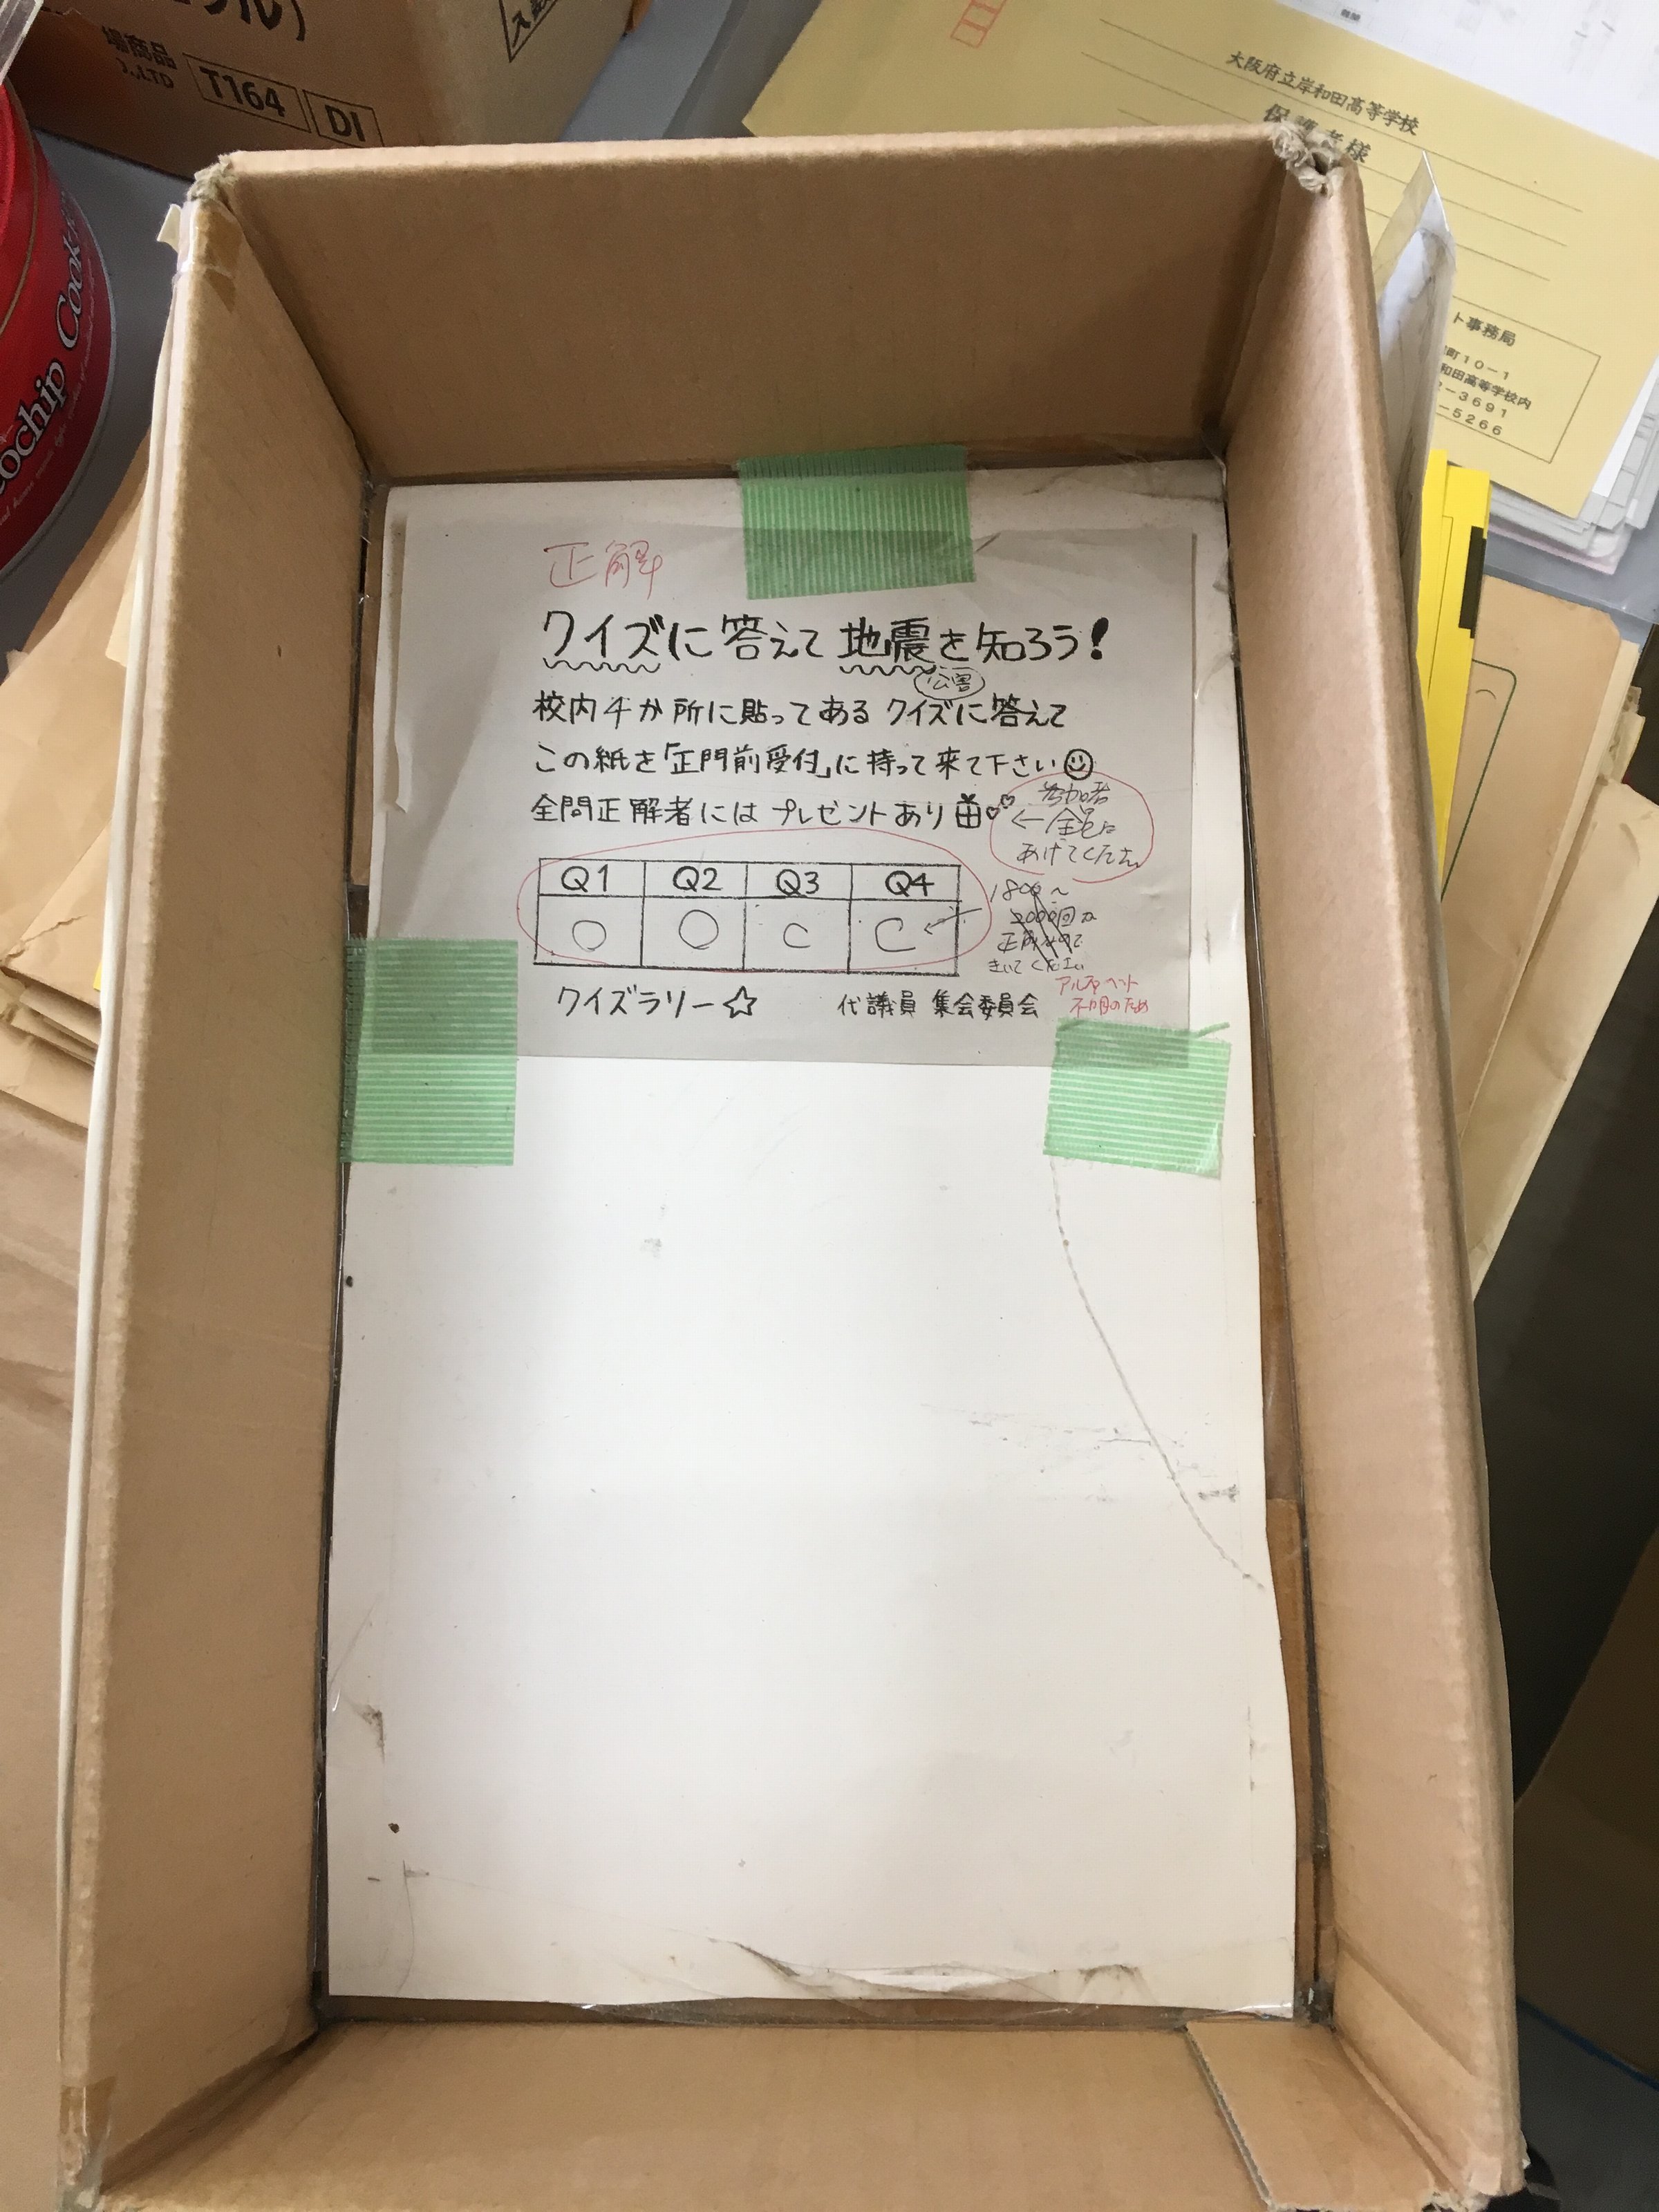 場商品
T164
DI
大阪府立岸和田高等学校
保護者様
ト事務局
町10-1
和田高等学校内
-3691
-5266
正解
クイズに答えて地震を知ろう!
公害
校内4か所に貼ってあるクイズに答えて
この紙を「正門前受付」に持って来て下さい
全問正解者にはプレゼントあり
参加者
←全員に
あげてください
Q1 Q2 Q3 Q4
○ ○ C C
1800~
2000回が
きいてください
アルファベット
不明のため
クイズラリー☆ 代議員 集会委員会